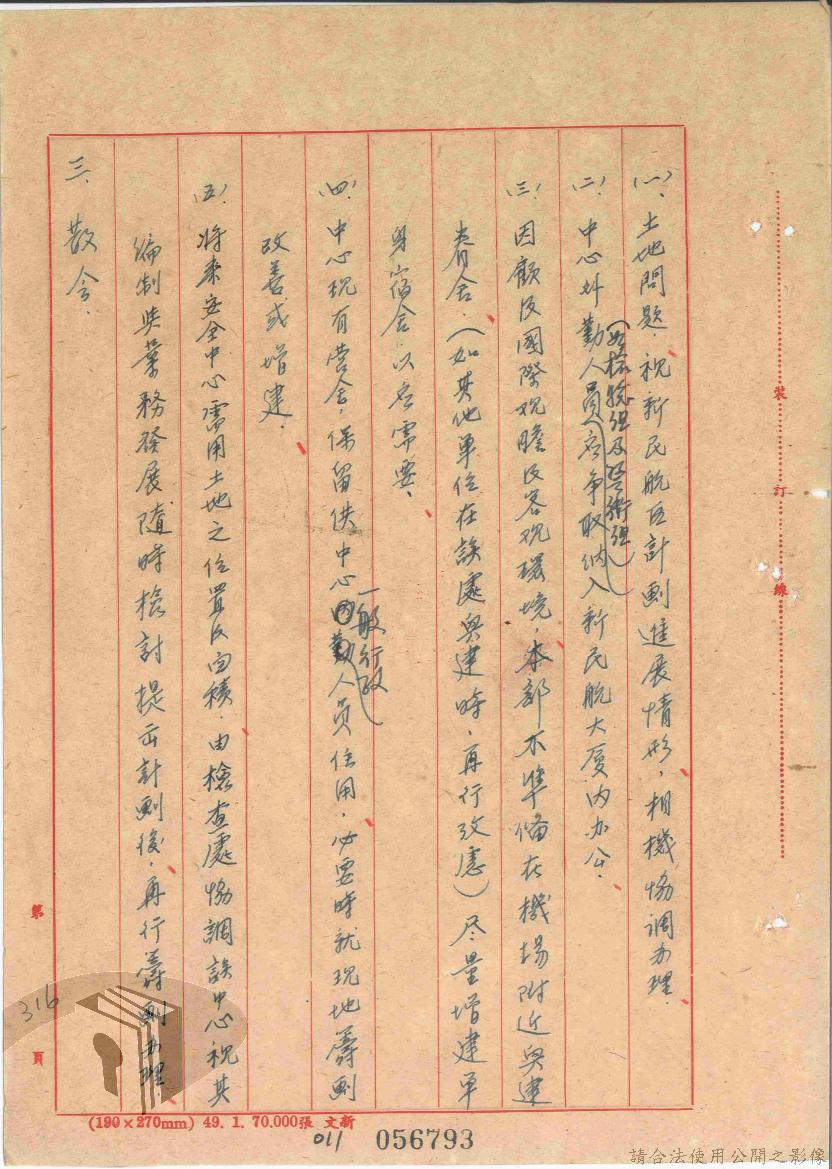 (一)、土地問題，視新民航區計劃進展情形，相機協調办理.
(二)、中心外勤人員(如檢驗組及學術組)应爭取納入新民航大厦內办公.
(三)、因顧及國際观瞻及客观環境，本部不準備在機場附近興建
眷舍.(如其他單位在該處興建時，再行攷慮)尽量增建單
身宿舍以应需要.
(四)、中心現有营舍，保留供中心一般行政人員住用，必要時就現地籌劃
改善或增建.
(五)、將來安全中心需用土地之位置及面積，由檢查處協調該中心視其
編制與業務發展隨時檢討提出計劃後，再行籌劃办理
三、散会.
裝
訂
線
第
頁
316
(190×270mm) 49. 1. 70.000張 文新
011
056793
請合法使用公開之影像